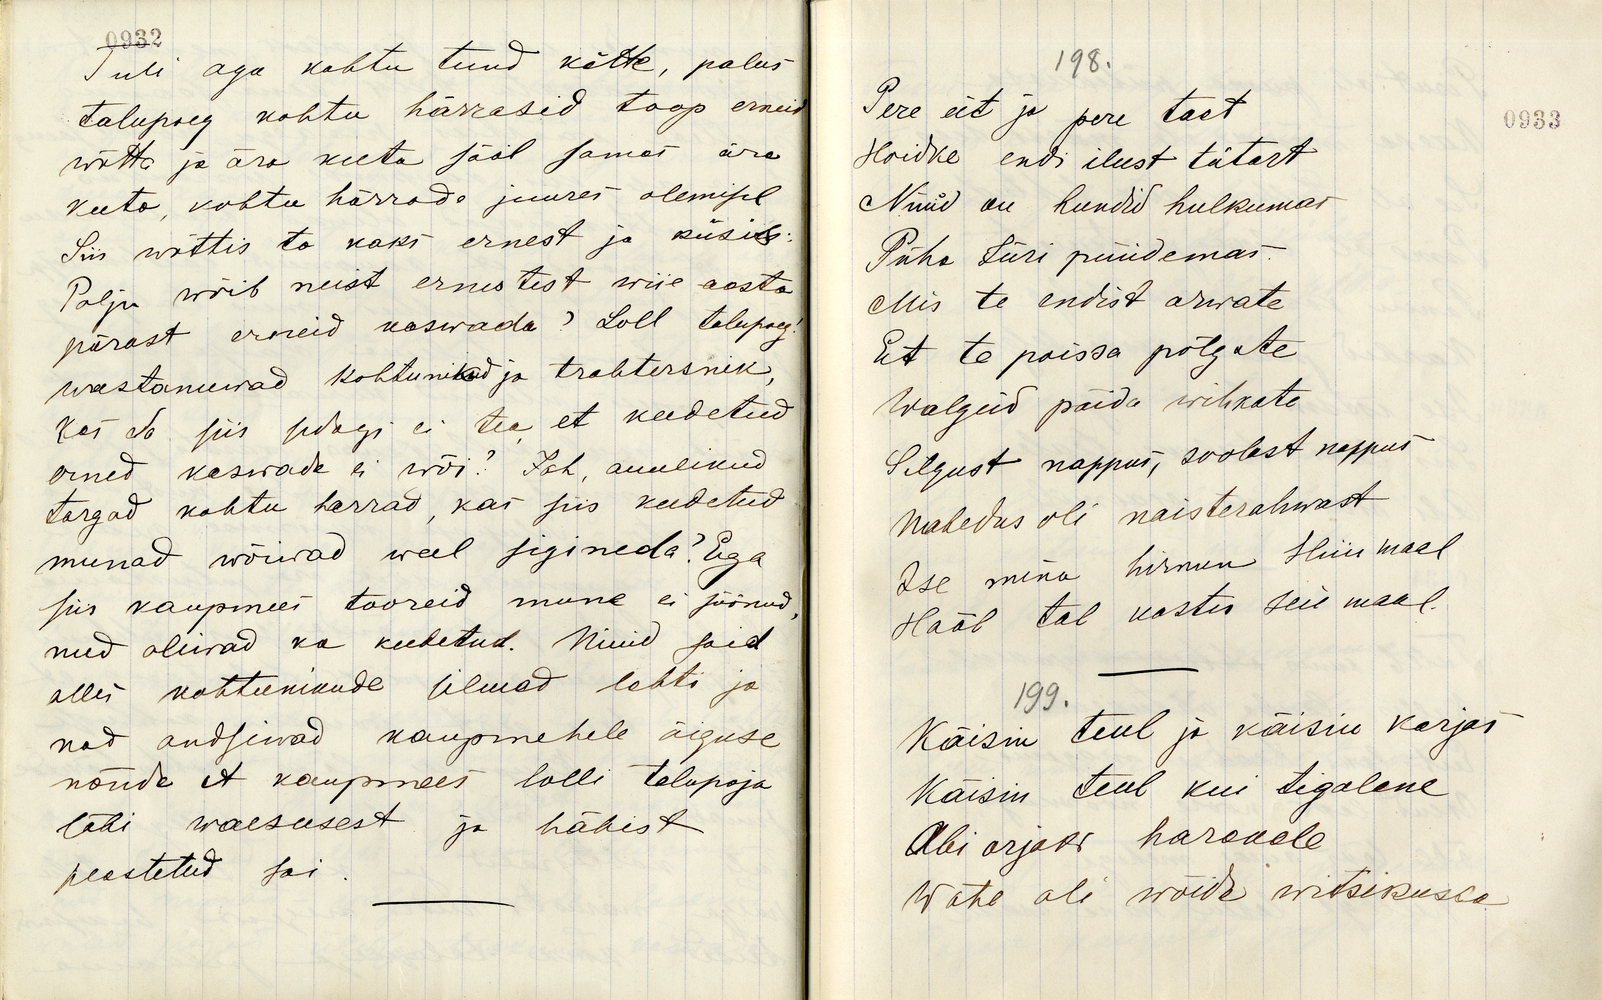 0932
Tuli aga kohtu tund kätte, palus
talupoeg kohtu härrasid toop erneid
wõtta ja ära keeta sääl samas ära
keeta, kohtu härrade juures olemisel
Siis wõttis ta kaks ernest ja küsis:
Palju wõib neist ernestest wiie aasta
pärast erneid kaswada? Loll talupoeg!
wastanuwad kohtunikud ja trahtersnik,
Kas sa siis sedagi ei tea, et keedetud
erned kaswada ei wõi? Jah, auulikud
targad kohtu harrad, kas siis keedetud
munad wõiwad weel sigineda? Ega
siis kaupmees tooreid mune ei söönud,
need oliwad ka keedetud. Nüüd said
alles kohtunikude silmad lahti ja
nad andsiwad kaupmehele õiguse
nõnda et kaupmees lolli talupoja
läbi waesusest ja häbist
peastetud sai.
198.
0933
Pere eit ja pere taat
Hoidke endi ilust tütart
Nüüd on hundid hulkumas
Püha Jüri püüdemas.
Mis te endist arwate
Et te poissa põlgate
Walgeid päida wihkate
Silgust nappus, soolast nappus
Nabedus oli naisterahwast
Ise mina hirnun Hiiu maal
Hääl tal kostis seie maal.
199.
Käisin teul ja käisin karjas
Käisin teul kui tigalane
Abi orjaks harakale
Wähe oli wõida witsikussa